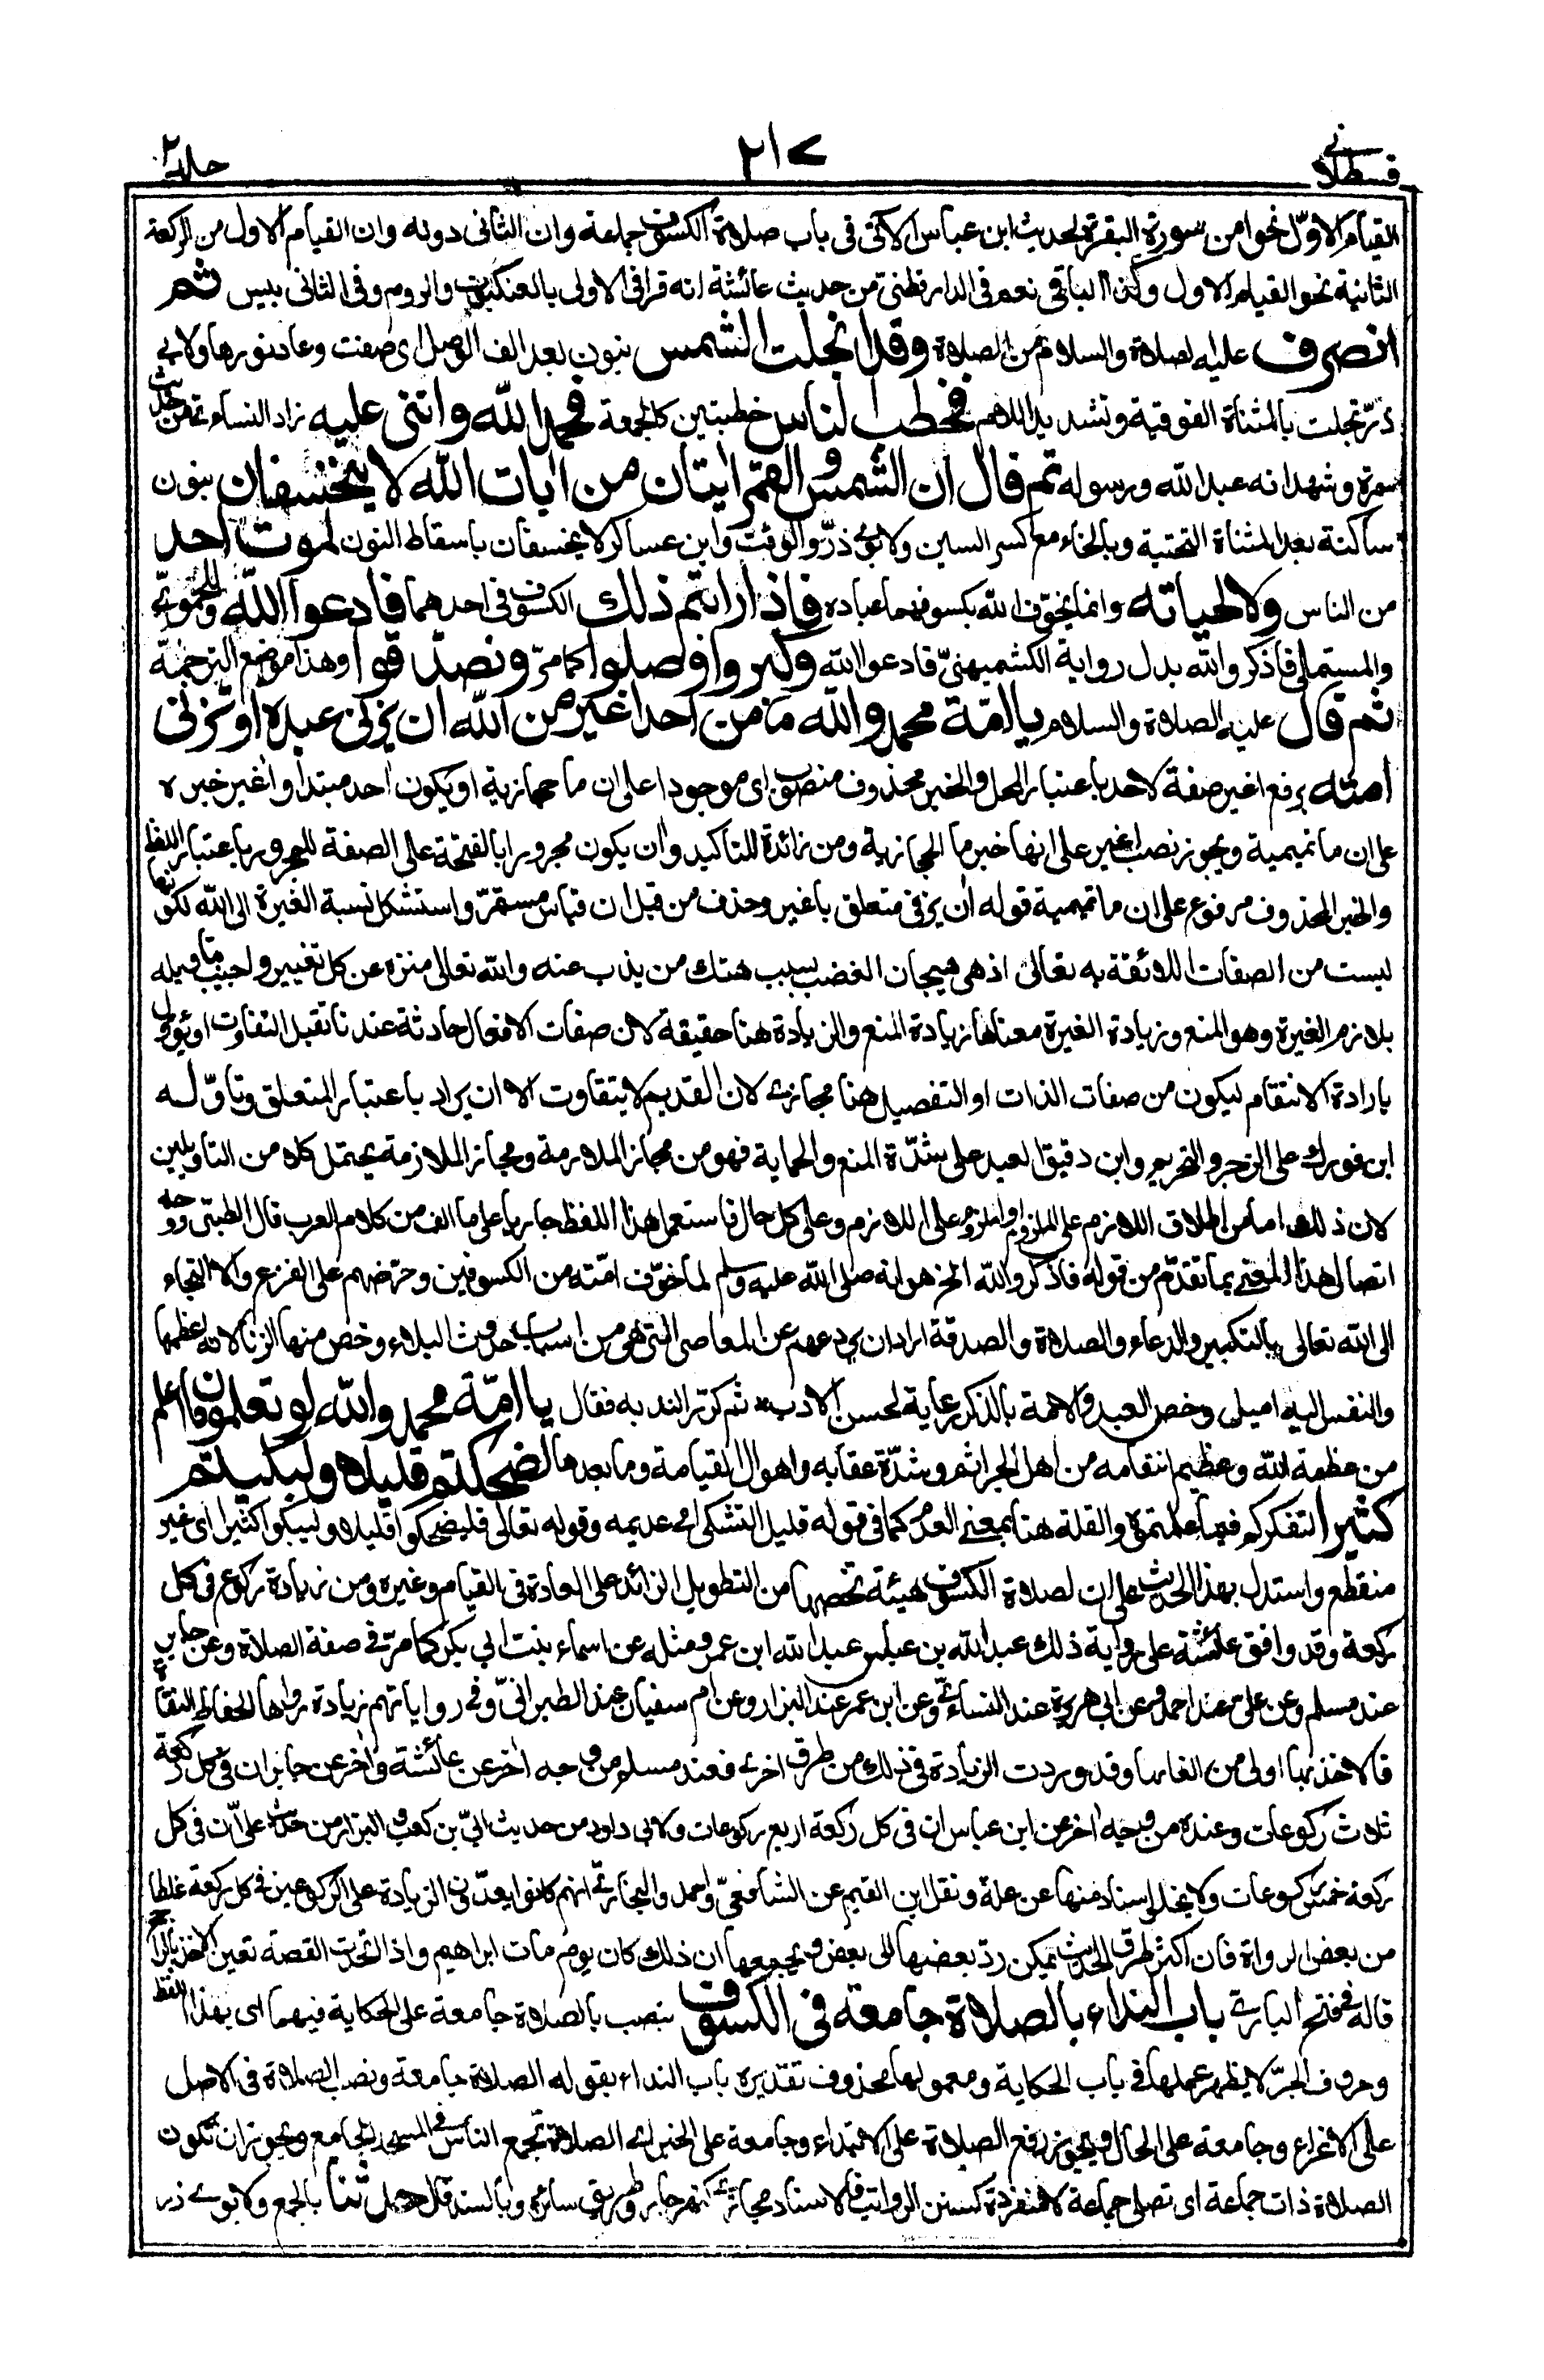 قسطلانی
٢١٧
جلد ٢
القيام الاوّل نحوا من سورة البقرة لحديث ابن عباس الآتى فى باب صلاة الكسوف جماعة وان الثانى دونه وان القيام الاول من الركعة
الثانية نحو القيام الاول وكذا الباقى نعم فى الدارقطنىّ من حديث عائشة انه قرا فى الاولى بالعنكبوت والروم وفى الثانى بيس ثم
انصرف عليه الصلاة والسلام من الصلاة وقد انجلت الشمس بنون بعد الف الوصل اى صفت وعاد نورها ولابى
ذرّ تجلت بالمثناة الفوقية وتشديد اللام فخطب الناس خطبتين كالجمعة فحمد الله واثنى عليه زاد النساءى من حديث
سمرة وشهد انه عبد الله ورسوله ثم قال ان الشمس والقمر ايتان من ايات الله لا ينخسفان بنون
ساكنة بعد المثناة التحتية وبالخاء مع كسر السين ولابوى ذرّ والوقت وابن عساكر لا يخسفان باسقاط النون لموت احد
من الناس ولا لحياته وانما يخوّف الله بكسوفهما عباده فاذا رايتم ذلك الكسوف فى احدهما فادعوا الله وللحموى
والمستملى فاذكروا الله بدل رواية الكشميهنىّ فادعوا الله وكبروا وصلوا كما مرّ وتصدّقوا وهذا موضع الترجمة
ثم قال عليه الصلاة والسلام يا امّة محمد والله ما من احد اغير من الله ان يزنى عبده او تزنى
امته برفع اغير صفة لاحد باعتبار المحل والخبر محذوف منصوب اى موجودا على ان ما حجازية او يكون احد مبتدأ واغير خبره
على ان ما تميمية ويجوز نصب اغير على انها خبر ما الحجازية ومن زائدة للتاكيد وان يكون مجرورا بالفتحة على الصفة للمجرور باعتبار اللفظ
والخبر المحذوف مرفوع على ان ما تميمية قوله ان يزنى متعلق باغير وحذف من قبل ان قياس مستمرّ واستشكل نسبة الغيرة الى الله لكونها
ليست من الصفات اللائقة به تعالى اذ هى هيجان الغضب بسبب هتك من يذب عنه والله تعالى منزه عن كل تغيير واجيب بتاويله
بلازم الغيرة وهو المنع وزيادة الغيرة معناها زيادة المنع والزيادة هنا حقيقة لان صفات الافعال حادثة عندنا تقبل التفاوت او يؤول
بارادة الانتقام ليكون من صفات الذات او التفصيل هنا مجازى لان القديم لا يتفاوت الا ان يراد باعتبار المتعلق وتاوّله
ابن فورك على الزجر والتحريم وابن دقيق العيد على شدّة المنع والحماية فهو من مجاز الملازمة ومجاز الملازمة يحتمل كلا من التاويلين
لان ذلك اما من اطلاق اللازم على الملزوم او الملزوم على اللازم وعلى كل حال فاستعمال هذا اللفظ جاريا على ما الف من كلام العرب قال الطيبى ووجه
اتصال هذا المعنى بما تقدّم من قوله فاذكروا الله الخ هو انه صلى الله عليه وسلم لما خوّف امّته من الكسوفين وحرّضهم على الفزع والالتجاء
الى الله تعالى بالتكبير والدعاء والصلاة والصدقة اراد ان يردعهم عن المعاصى التى هى من اسباب حدوث البلاء وخص منها الزنا لانه اعظمها
والنفس اليه اميل وخص العبد والامة بالذكر رعاية لحسن الادب ثم كرّر الندبه فقال يا امّة محمد والله لو تعلمون ما اعلم
من عظمة الله وعظيم انتقامه من اهل الجرائم وشدّة عقابه واهوال القيامة وما بعدها لضحكتم قليلا ولبكيتم
كثيرا لتفكركم فيما علمتموه والقلة هنا بمعنى العدم كما فى قوله قليل التشكى اى عديمه وقوله تعالى فليضحكوا قليلا وليبكوا كثيرا اى غير
منقطع واستدل بهذا الحديث على ان لصلاة الكسوف هيئة تخصها من التطويل الزائد على العادة فى القيام وغيره ومن زيادة ركوع فى كل
ركعة وقد وافق عائشة على رواية ذلك عبد الله بن عباس وعبد الله ابن عمرو ومثله عن اسماء بنت ابى بكر كما مرّ فى صفة الصلاة وعن جابر
عند مسلم وعن علىّ عند احمد وعن ابى هريرة عند النساءىّ وعن ابن عمر عند البزار وعن ام سفيان عند الطبرانىّ وفى رواياتهم زيادة رواها الحفاظ الثقات
فالاخذ بها اولى من الغائها وقد وردت الزيادة فى ذلك من طرق اخرى فعند مسلم من وجه اخر عن عائشة واخر عن جابر ان فى كل ركعة
ثلاث ركوعات وعنده من وجه اخر عن ابن عباس ان فى كل ركعة اربع ركوعات ولابى داود من حديث ابىّ بن كعب والبزار من حديث علىّ ان فى كل
ركعة خمس ركوعات ولا يخلو اسناد منها عن علة ونقل ابن القيم عن الشافعىّ واحمد والبخارىّ انهم كانوا يعدّون الزيادة على الركوعين فى كل ركعة غلطا
من بعض الرواة فان اكثر طرق الحديث يمكن ردّ بعضها الى بعض ويجمعها ان ذلك كان يوم مات ابراهيم واذا اتحدت القصة تعين الاخذ بالراجح
قاله فى فتح البارى باب النداء بالصلاة جامعة فى الكسوف بنصب بالصلاة جامعة على الحكاية فيهما اى بهذا اللفظ
وحروف الجرّ لا يظهر عملها فى باب الحكاية ومعمولها محذوف تقديره باب النداء بقوله الصلاة جامعة ونصب الصلاة فى الاصل
على الاغراء وجامعة على الحال ويجوز رفع الصلاة على الابتداء وجامعة على الخبر اى الصلاة تجمع الناس فى المسجد الجامع ويجوز ان تكون
الصلاة ذات جماعة اى تصلى جماعة لا منفردة كسنن الرواتب فالاسناد مجازىّ كنهر جار وطريق سائره وبالسند قال حدثنا بالجمع ولابوى ذر